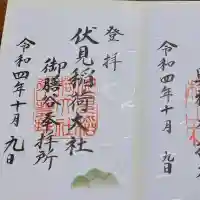 登拝
伏見稲荷大社
御膳谷奉拝所
令和四年十月九日
令和四年十月九日